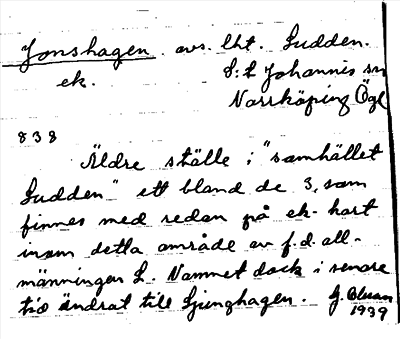 Jonshagen. avs. lht. Sudden.
ek. S:t Johannis sn
Norrköping Ögl
838
Äldre ställe i "samhället
Sudden" ett bland de 3, som
finnes med redan på ek-kart
inom detta område av f.d. all-
männingen L. Namnet dock i senare
tid ändrat till Ljunghagen. G.
1939